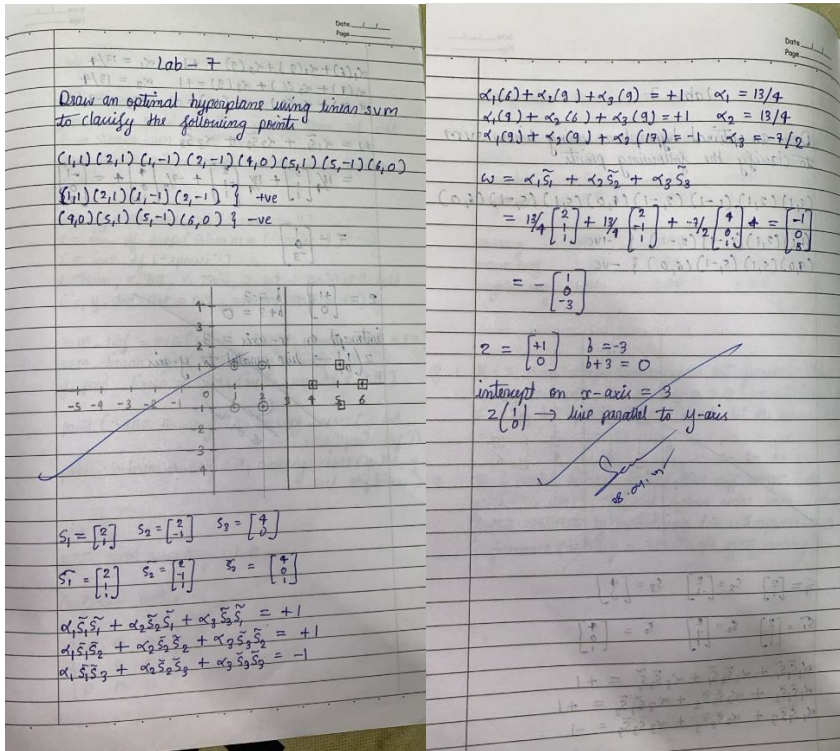 Date
Page
Lab - 7
Draw an optimal hyperplane using linear SVM
to classify the following points
(1,1) (2,1) (1,-1) (2,-1) (4,0) (5,1) (5,-1) (6,0)
(1,1) (2,1) (1,-1) (2,-1) } +ve
(4,0) (5,1) (5,-1) (6,0) } -ve
4
3
2
1
-5 -4 -3 -2 -1 0 1 2 3 4 5 6
-1
-2
-3
4
S₁ = [2 1] S₂ = [2 -1] S₃ = [4 0]
S̃₁ = [2 1 1] S₂ = [2 -1 1] = [4 0 1]
α₁S̃₁S̃₁ + α₂S̃₂S̃₁ + α₃S̃₃S̃₁ = +1
α₁S̃₁S̃₂ + α₂S̃₂S̃₂ + α₃S̃₃S̃₂ = +1
α₁S̃₁S̃₃ + α₂S̃₂S̃₃ + α₃S̃₃S̃₃ = -1
Date
Page
α₁(6) + α₂(4) + α₃(9) = +1 α₁ = 13/4
α₁(4) + α₂(6) + α₃(9) = +1 α₂ = 13/4
α₁(9) + α₂(9) + α₂(17) = -1 α₃ = -7/2
w = α₁S̃₁ + α₂S̃₂ + α₃S̃₃
= 13/4 [2 1 1] + 13/4 [2 -1 1] + -7/2 [4 0 1] = [-1 0 3]
= - [1 0 -3]
2 = [+1 0] b = -3
b+3 = 0
intercept on x-axis = 3
2 (1 0) → line parallel to y-axis